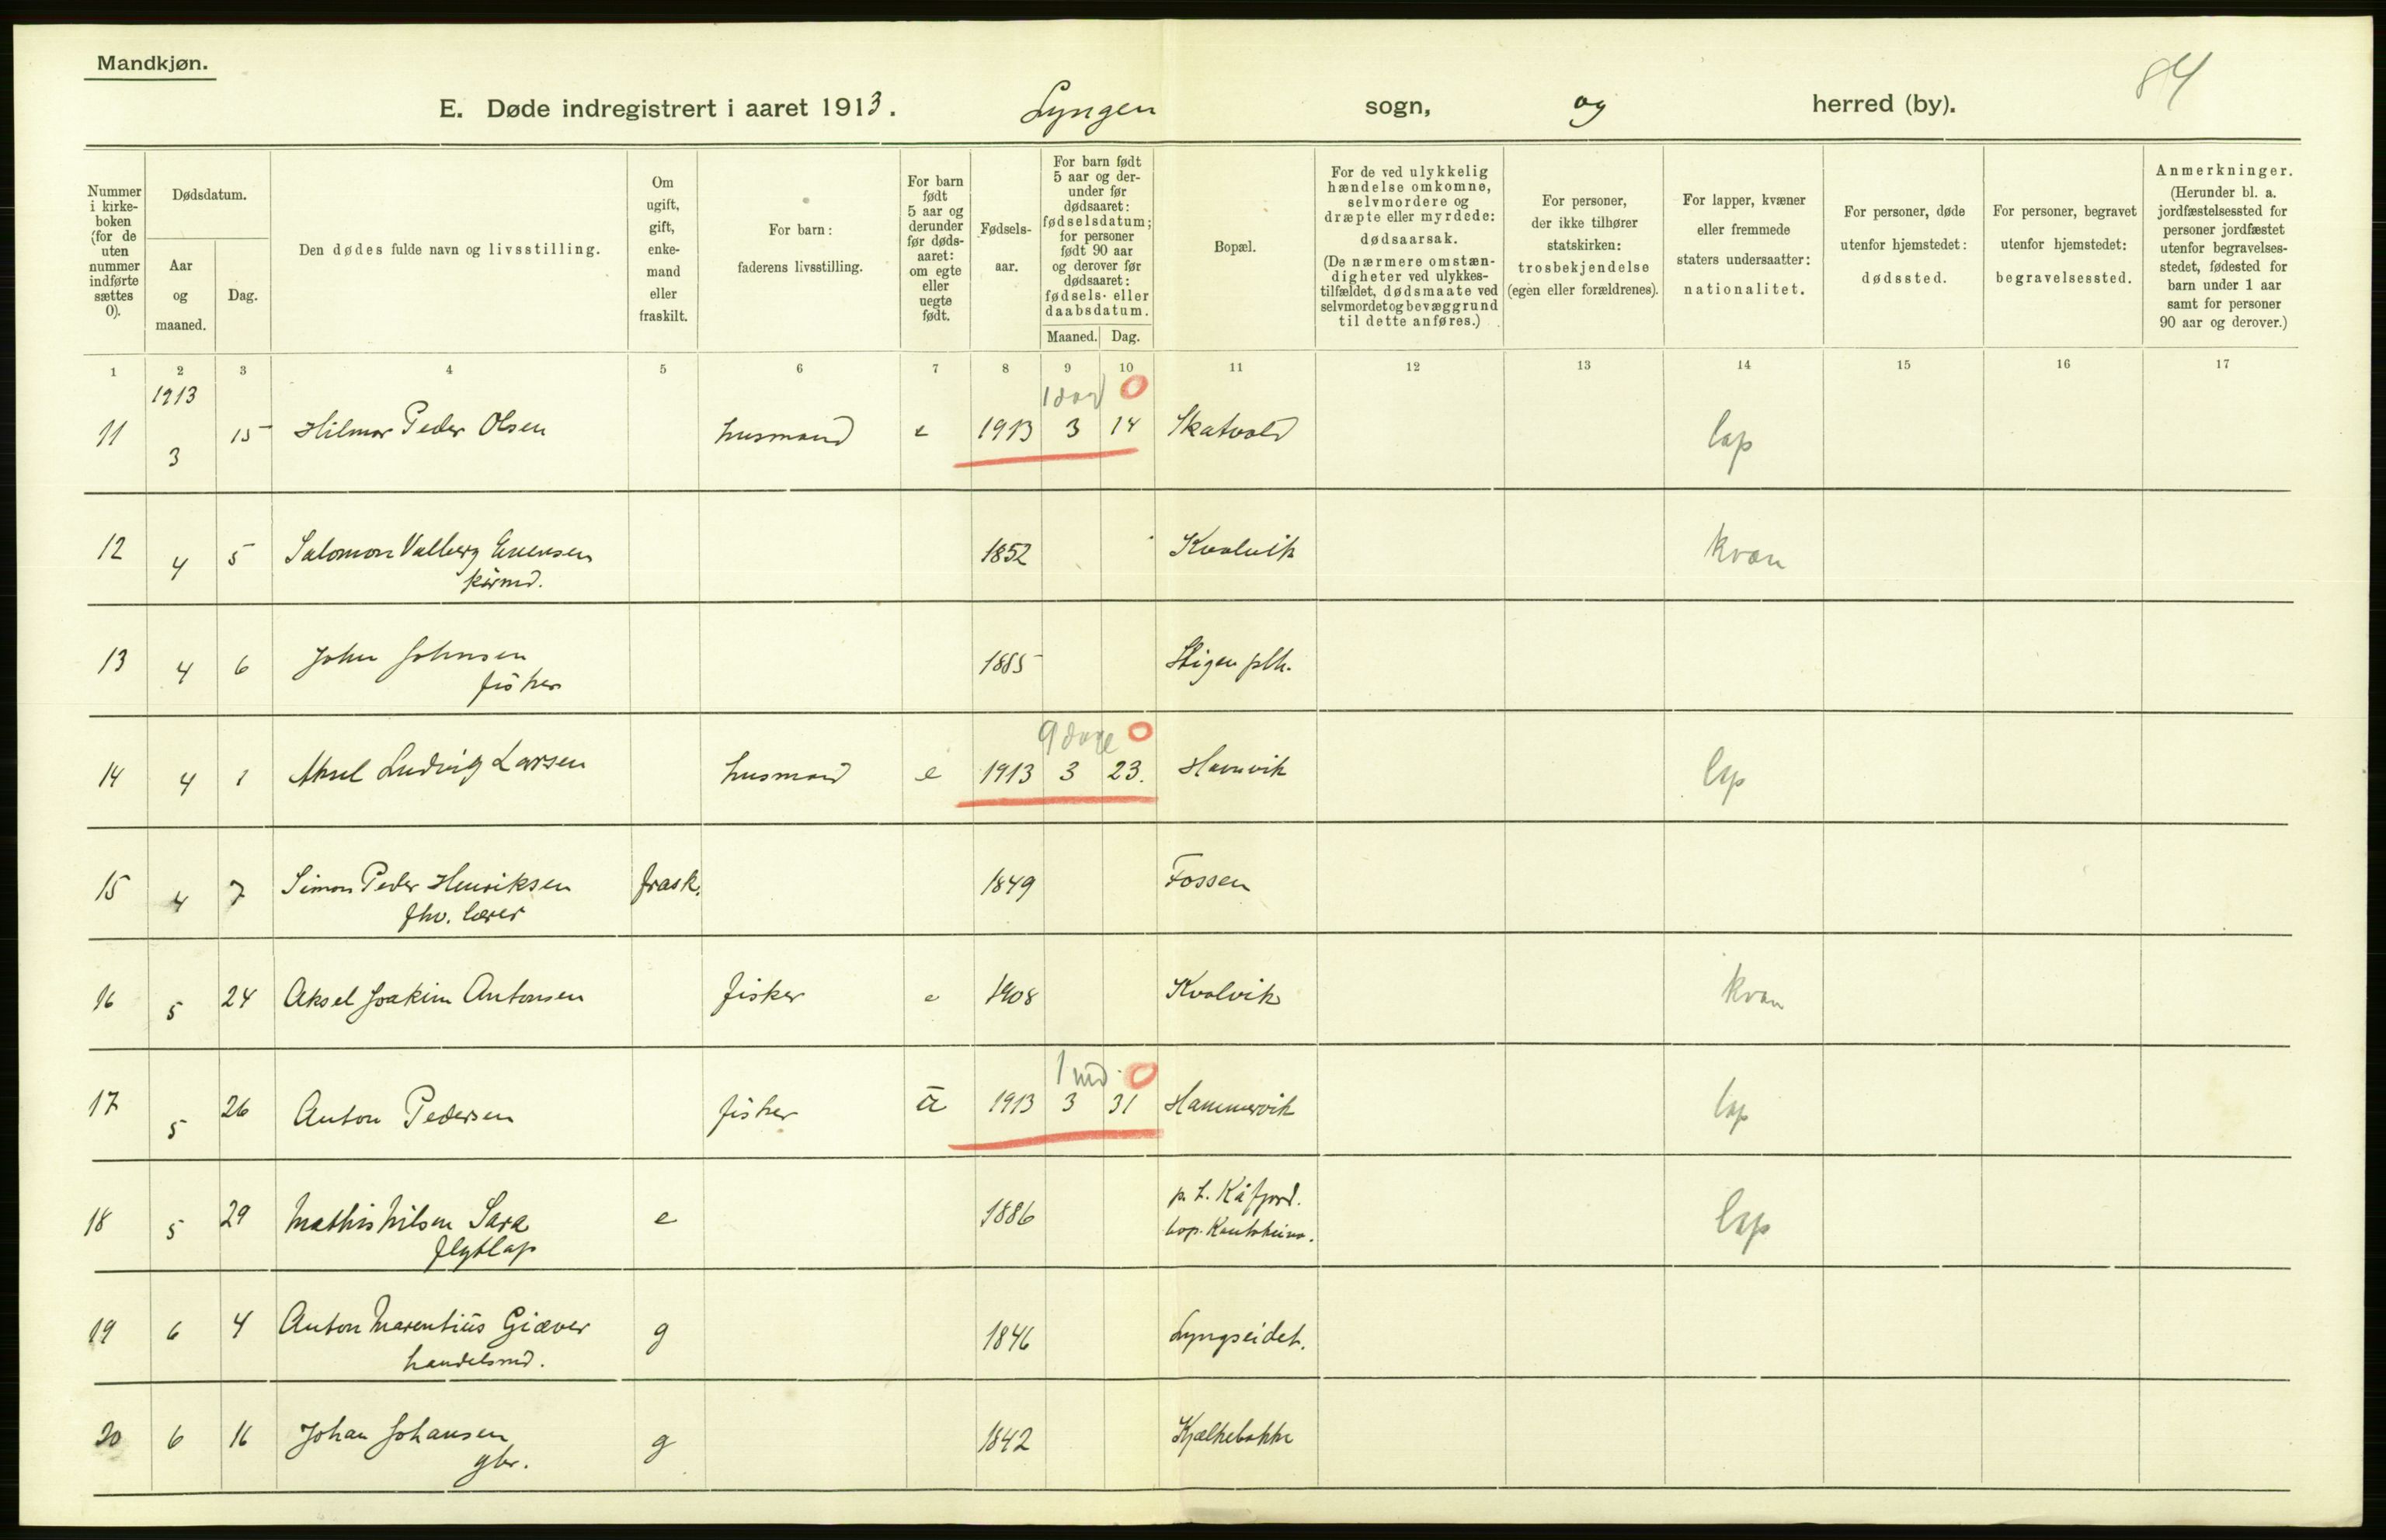 Mandkjøn.
84
E. Døde indregistrert i aaret 1913. Lyngen sogn, og herred (by).
Nummer i kirke- boken (for de uten nummer indførte sættes 0).
Dødsdatum.
Aar og maaned.
Dag.
Den dødes fulde navn og livsstilling.
Om ugift, gift, enke- mand eller fraskilt.
For barn: faderens livsstilling.
For barn født 5 aar og derunder før døds- aaret: om egte eller uegte født.
Fødsels- aar.
For barn født 5 aar og der- under før dødsaaret: fødselsdatum; for personer født 90 aar og derover før dødsaaret: fødsels- eller daabsdatum.
Maaned. Dag.
Bopæl.
For de ved ulykkelig hændelse omkomne, selvmordere og dræpte eller myrdede: dødsaarsak. (De nærmere omstæn- digheter ved ulykkes- tilfældet, dødsmaate ved selvmordet og bevæggrund til dette anføres.)
For personer, der ikke tilhører statskirken: trosbekjendelse (egen eller forældrenes).
For lapper, kvæner eller fremmede staters undersaatter: nationalitet.
For personer, døde utenfor hjemstedet: dødssted.
For personer, begravet utenfor hjemstedet: begravelsessted.
Anmerkninger. (Herunder bl. a. jordfæstelsessted for personer jordfæstet utenfor begravelses- stedet, fødested for barn under 1 aar samt for personer 90 aar og derover.)
1 2 3 4 5 6 7 8 9 10 11 12 13 14 15 16 17
1913
1 dag 0
11 3 15 Hilmar Peder Olsen husmand e 1913 3 14 Skatvold lap
12 4 5 Salomon Valberg Evensen 1852 Kvalvik kvæn
kårmd.
13 4 6 John Johnsen 1885 Stigen plh.
fisker
9 dage 0
14 4 1 Aksel Ludvig Larsen husmand e 1913 3 23. Havnvik lap
15 4 7 Simon Peder Henriksen frask. 1849 Fossen
fhv. lærer
16 5 24 Aksel Joakim Antonsen fisker e 1908 Kvalvik kvæn
1 md. 0
17 5 26 Anton Pedersen fisker u 1913 3 31 Hammervik lap
18 5 29 Mathis Nilsen Sara e 1886 p. t. Kåfjord. lap
flytlap bop. Kautokeino.
19 6 4 Anton Marentius Giæver g 1846 Lyngseidet.
handelsmd.
20 6 16 Johan Johansen g 1842 Kjælkebakke
gbr.